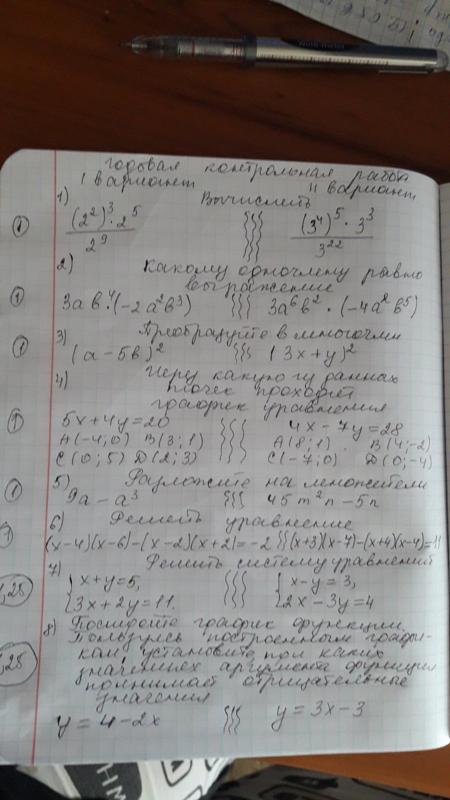 годовая контрольная работ
I вариант II вариант
1) Вычислить
① (2²)³ · 2⁵ / 2⁹ (3⁴)⁵ · 3³ / 3²²
2) Какому одночлену равно
выражение
① 3ab⁴·(-2a²b³) 3a⁶b² · (-4a²b⁵)
3) Преобразуйте в многочлен
① (a-5b)² (3x+y)²
4) Через какую из данных
точек проходит
график уравнения
① 5x+4y=20 4x-7y=28
A(-4;0) B(3;1) A(8;1) B(4;-2)
C(0;5) D(2;3) C(-7;0) D(0;-4)
5) Разложите на множители
① 9a-a³ 45m²n-5n
6) Решить уравнение
(x-4)(x-6)-(x-2)(x+2)=-2 (x+3)(x-7)-(x+4)(x-4)=11
7) Решить систему уравнений
,25 {x+y=5, {x-y=3,
{3x+2y=11. {2x-3y=4
8) Постройте график функции.
Пользуясь построенным графи-
ком, установите, при каких
,25 значениях аргумента функция
принимает отрицательные
значения
y=4-2x y=3x-3